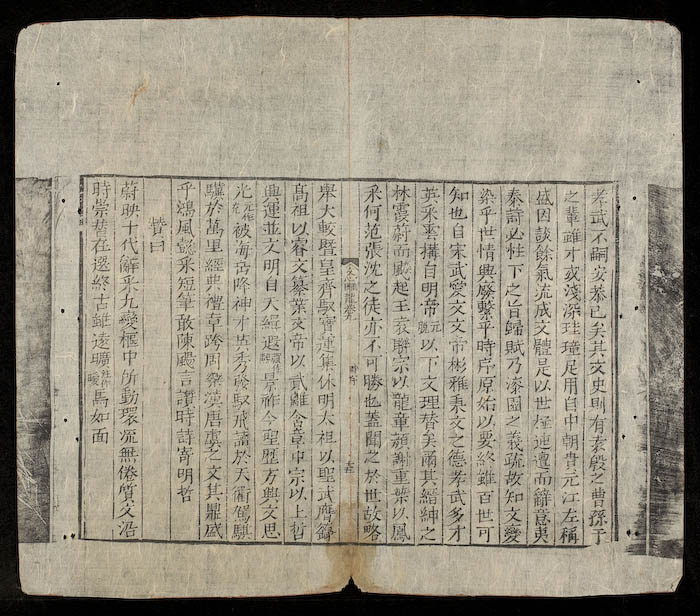 孝武不嗣安恭已矣其文史則有袁殷之曹孫干
之輩雖才或淺深珪璋足用自中朝貴元江左稱
盛因談餘氣流成文體是以世極迍邅而辭意夷
泰詩必柱下之旨歸賦乃漆園之義疏故知文變
染乎世情興廢繫乎時序原始以要終雖百世可
知也自宋武愛文文帝彬雅秉文之德孝武多才
英采雲構自明帝以下文理替矣爾其縉紳之
林霞蔚而飈起王袁聯宗以龍章顏謝重葉以鳳
采何范張沈之徒亦不可勝也蓋聞之於世故略
文心雕龍
時序
舉大較曁皇齊馭寶運集休明太祖以聖武膺籙
高祖以睿文纂業文帝以貳離含章中宗以上哲
興運並文明自天緝遐景祚今聖歷方興文思
光被海岳降神才英秀發馭飛龍於天衢駕騏
驥於萬里經典禮章跨周轢漢唐虞之文其鼎盛
乎鴻風懿采短筆敢陳颺言讚時請寄明哲
贊曰
蔚映十代辭采九變樞中所動環流無倦質文沿
時崇替在選終古雖遠曠焉如面